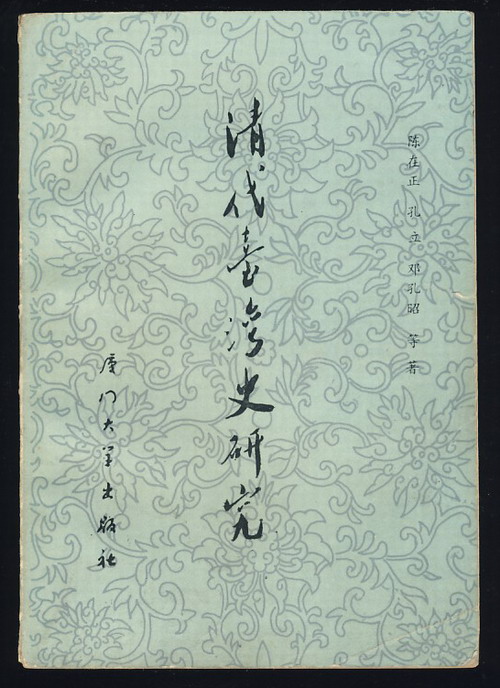 陈在正 孔立 邓孔昭 等著
清代臺湾史研究
厦门大学出版社